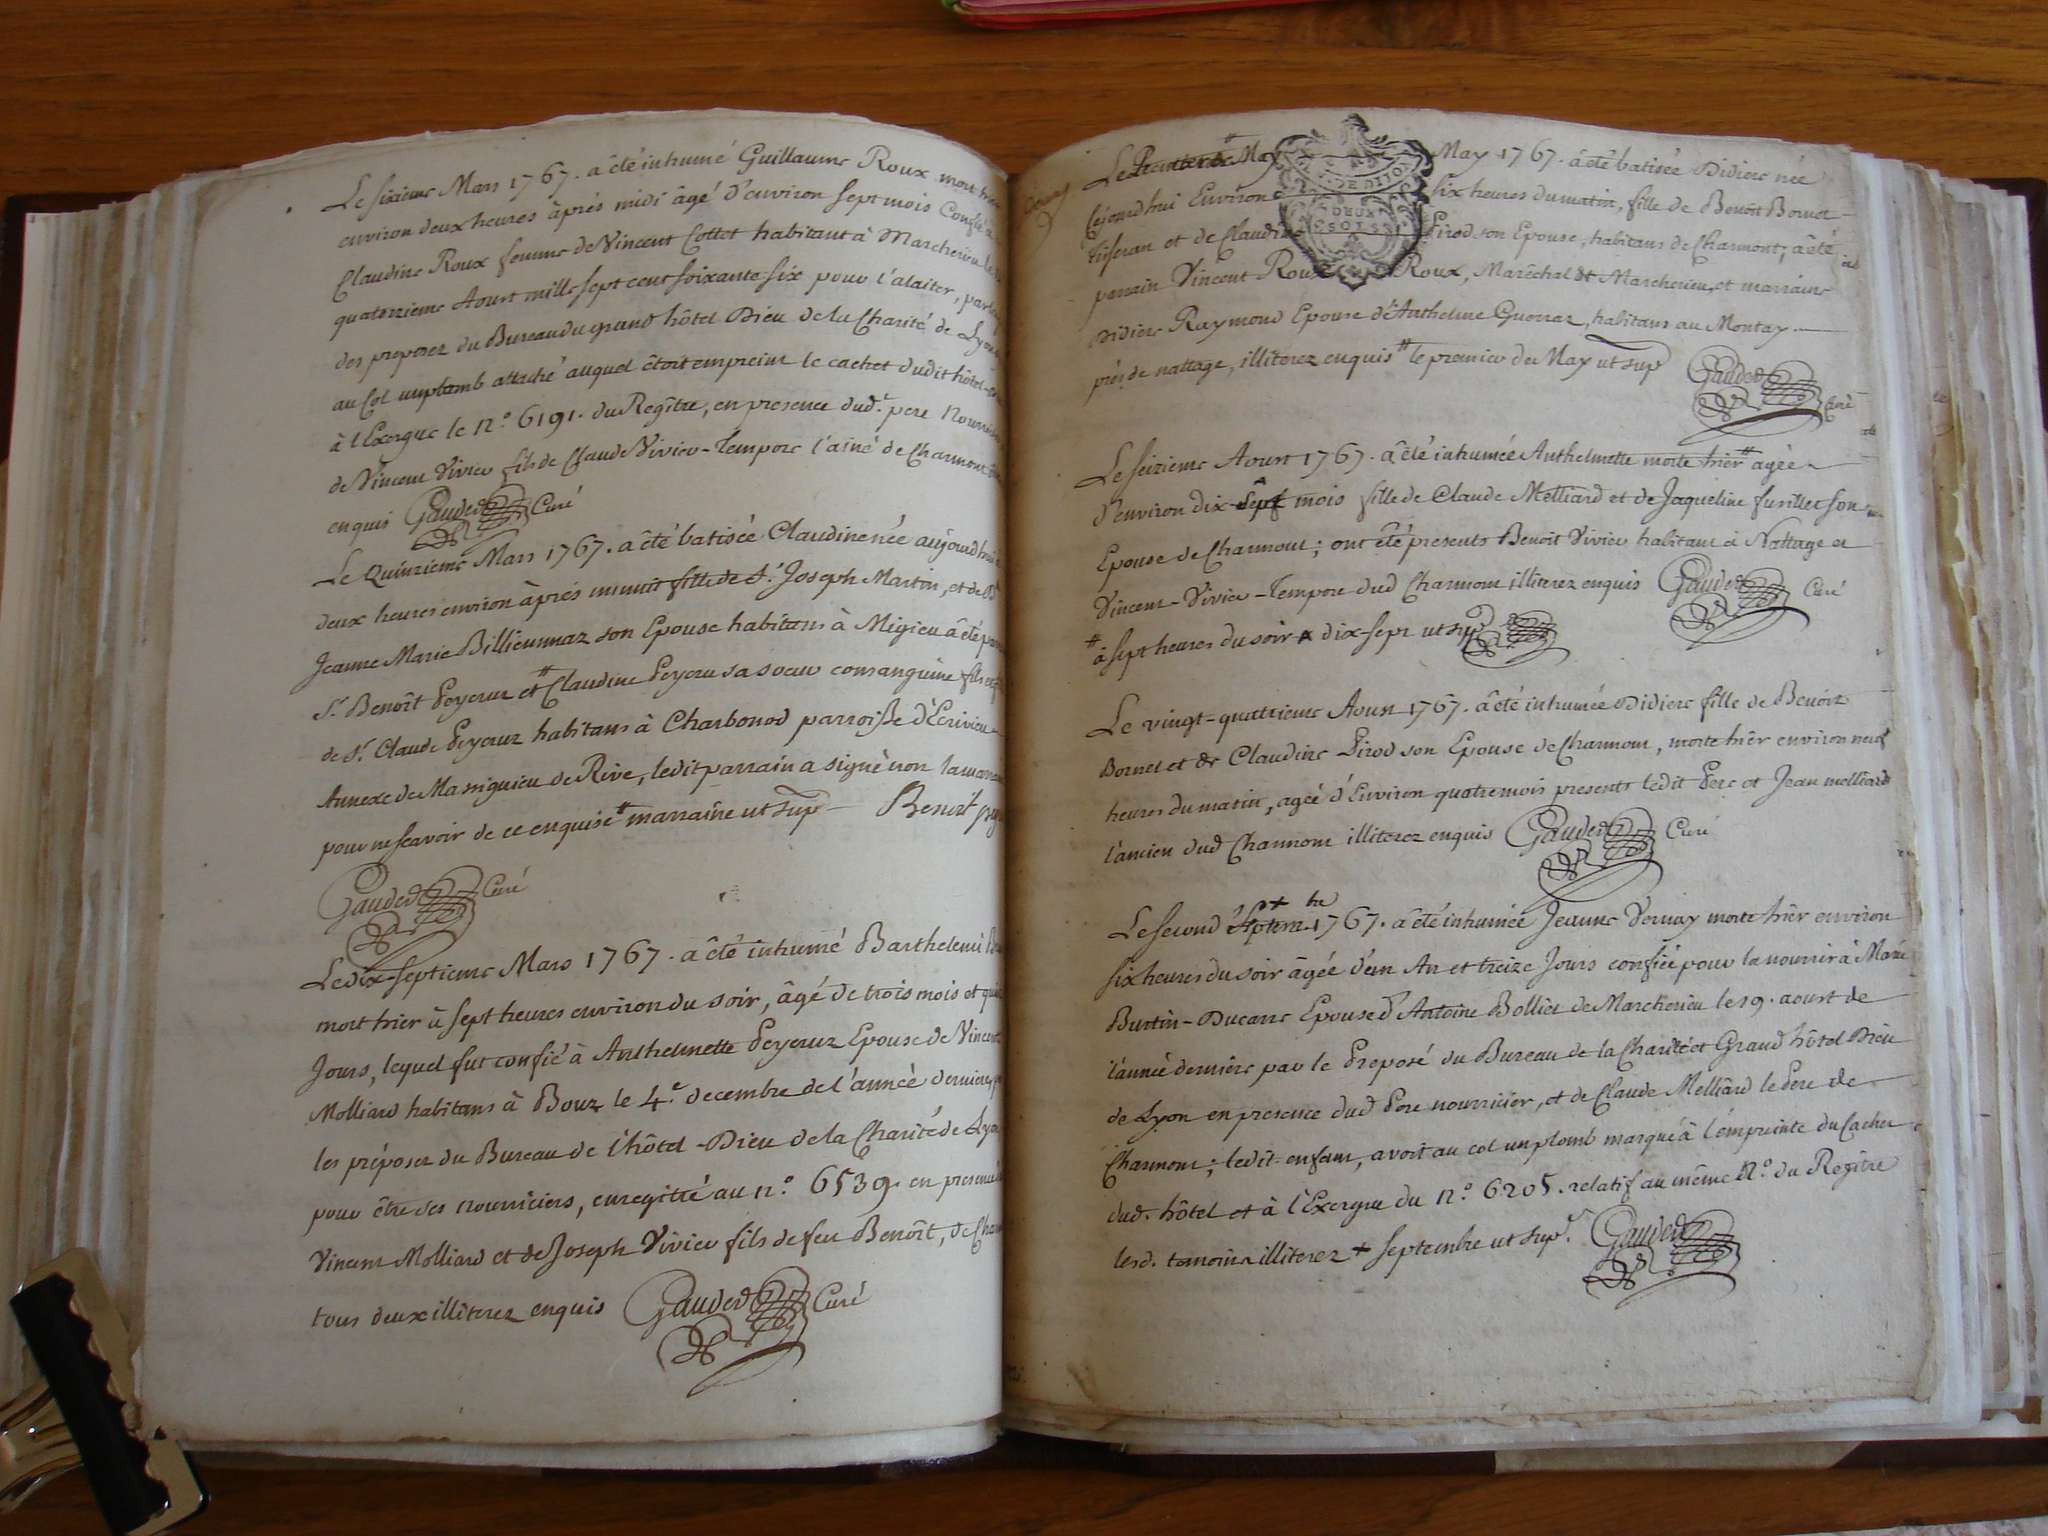 Le sixieme Mars 1767. a êté inhumé Guillaume Roux mort hier
environ deux heures âprés midi âgé d'environ sept mois Confié a
Claudine Roux femme de Vincent Collet habitant à Marcherieu le
quatorzieme Aoust mille sept cent soixante six pour l'alaiter, par les
des preposez du Bureau du grand hôtel Dieu de la Charité de Lyon
au Col un plomb attaché auquel êtoit empreint le cachet dudit hôtel
à l'Exergue le N.° 6191. du Regître, en presence dud.t pere Nourricier
de Vincent Vivier fils de Claude Vivier-Tempore l'ainé de Charmont
enquis Gauded Curé
Le Quinzieme Mars 1767. a êté batisée Claudine née aujourd'hui
deux heures environ âprés minuit fille de S.r Joseph Martin, et de
Jeanne Marie Billiennaz son Epouse habitans à Migieu a êté parrain
S.r Benoît Peyeruz et # Claudine Peyeru sa soeur consanguine fils et
de S.r Claude Peyeruz habitans à Charbonod parroisse d'Ecrivieu
Annexe de Massignieu de Rive, ledit parrain a signé non la marraine
pour ne scavoir de ce enquise # marraine ut sup Benoit
Gauded Curé
Le dix-septieme Mars 1767. a êté inhumé Barthelemi
mort hier à sept heures environ du soir, âgé de trois mois et
Jours, lequel fut confié à Anthelmette Peyeruz Epouse de Vincent
Molliard habitans à Bouz le 4.e decembre de l'année derniere,
les préposez du Bureau de l'hôtel-Dieu de la Charité de Lyon
pour être ses nourriciers, enregitré au n.° 6539. en presence
Vincent Molliard et de Joseph Vivier fils de feu Benoît, de
tous deux illiterez enquis Gauded Curé
Le Premier de May # May 1767. a êté batisée Didiere née
Cejourd'hui Environ six heures du matin, fille de Benoît Bornet
tisseran et de Claudine Pirod son Epouse, habitans de Charmont; a êté
parrain Vincent Roux Roux, Marêchal et Marcherieu, et marraine
Didiere Raymond Epouse d'Anthelme Guerraz, habitans au Montay
près de nattage, illiterez enquis # le premier de May ut sup
Gauded Curé
Le seizieme Aoust 1767. a êté inhumée Anthelmette morte hier # agée
d'environ dix-sept mois fille de Claude Melliard et de Jaqueline fusillet son
Epouse de Charmont; ont êté presents Benoit Vivier habitant à Nattage et
Vincent-Vivier-Tempore dud Charmont illiterez enquis Gauded Curé
# à sept heures du soir dix-sept ut sup
Le vingt-quatrieme Aoust 1767. a êté inhumée Didiere fille de Benoît
Bornet et de Claudine Pirod son Epouse de Charmont, morte hier environ neuf
heures du matin, agée d'Environ quatre mois presents ledit Pere et Jean melliard
l'ancien dud Charmont illiterez enquis Gauded Curé
Le second 1767. a êté inhumée Jeanne Vernay morte hier environ
six heures du soir âgée d'un An et treize Jours confiée pour la nourrir à Marie
Burtin-Ducarre Epouse d'Antoine Bolliet de Marcherieu le 19. aoust de
l'année derniere par le Preposé du Bureau de la Charité et Grand hôtel Dieu
de Lyon en presence dud Pere nourricier, et de Claude Melliard le Pere de
Charmont; ledit enfant, avoit au col un plomb marqué à l'émpreinte du Cachet
dud. hôtel et à l'Exergue du N.° 6205. relatif au même N.° du Regître
lesd. temoins illiterez + septembre ut sup. Gauded